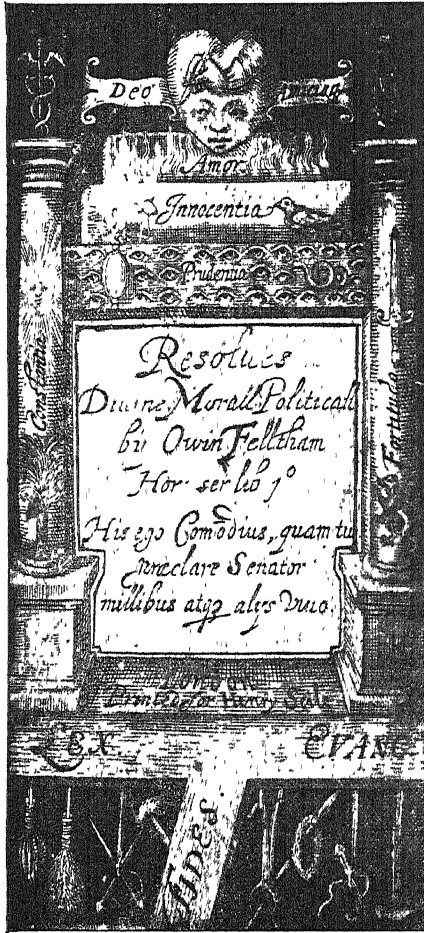 Deo
Amor
Innocentia
Prudentia
Constantia
Fortitudo
Resolues
Diuine Morall Politicall
by Owin Felltham
Hor ser lib 1º
His ego Comōdius, quam tu
præclare Senator
millibus atqȝ alijs Viuo
London
Printed for Henry Seile
LEX
EVANG
FIDES